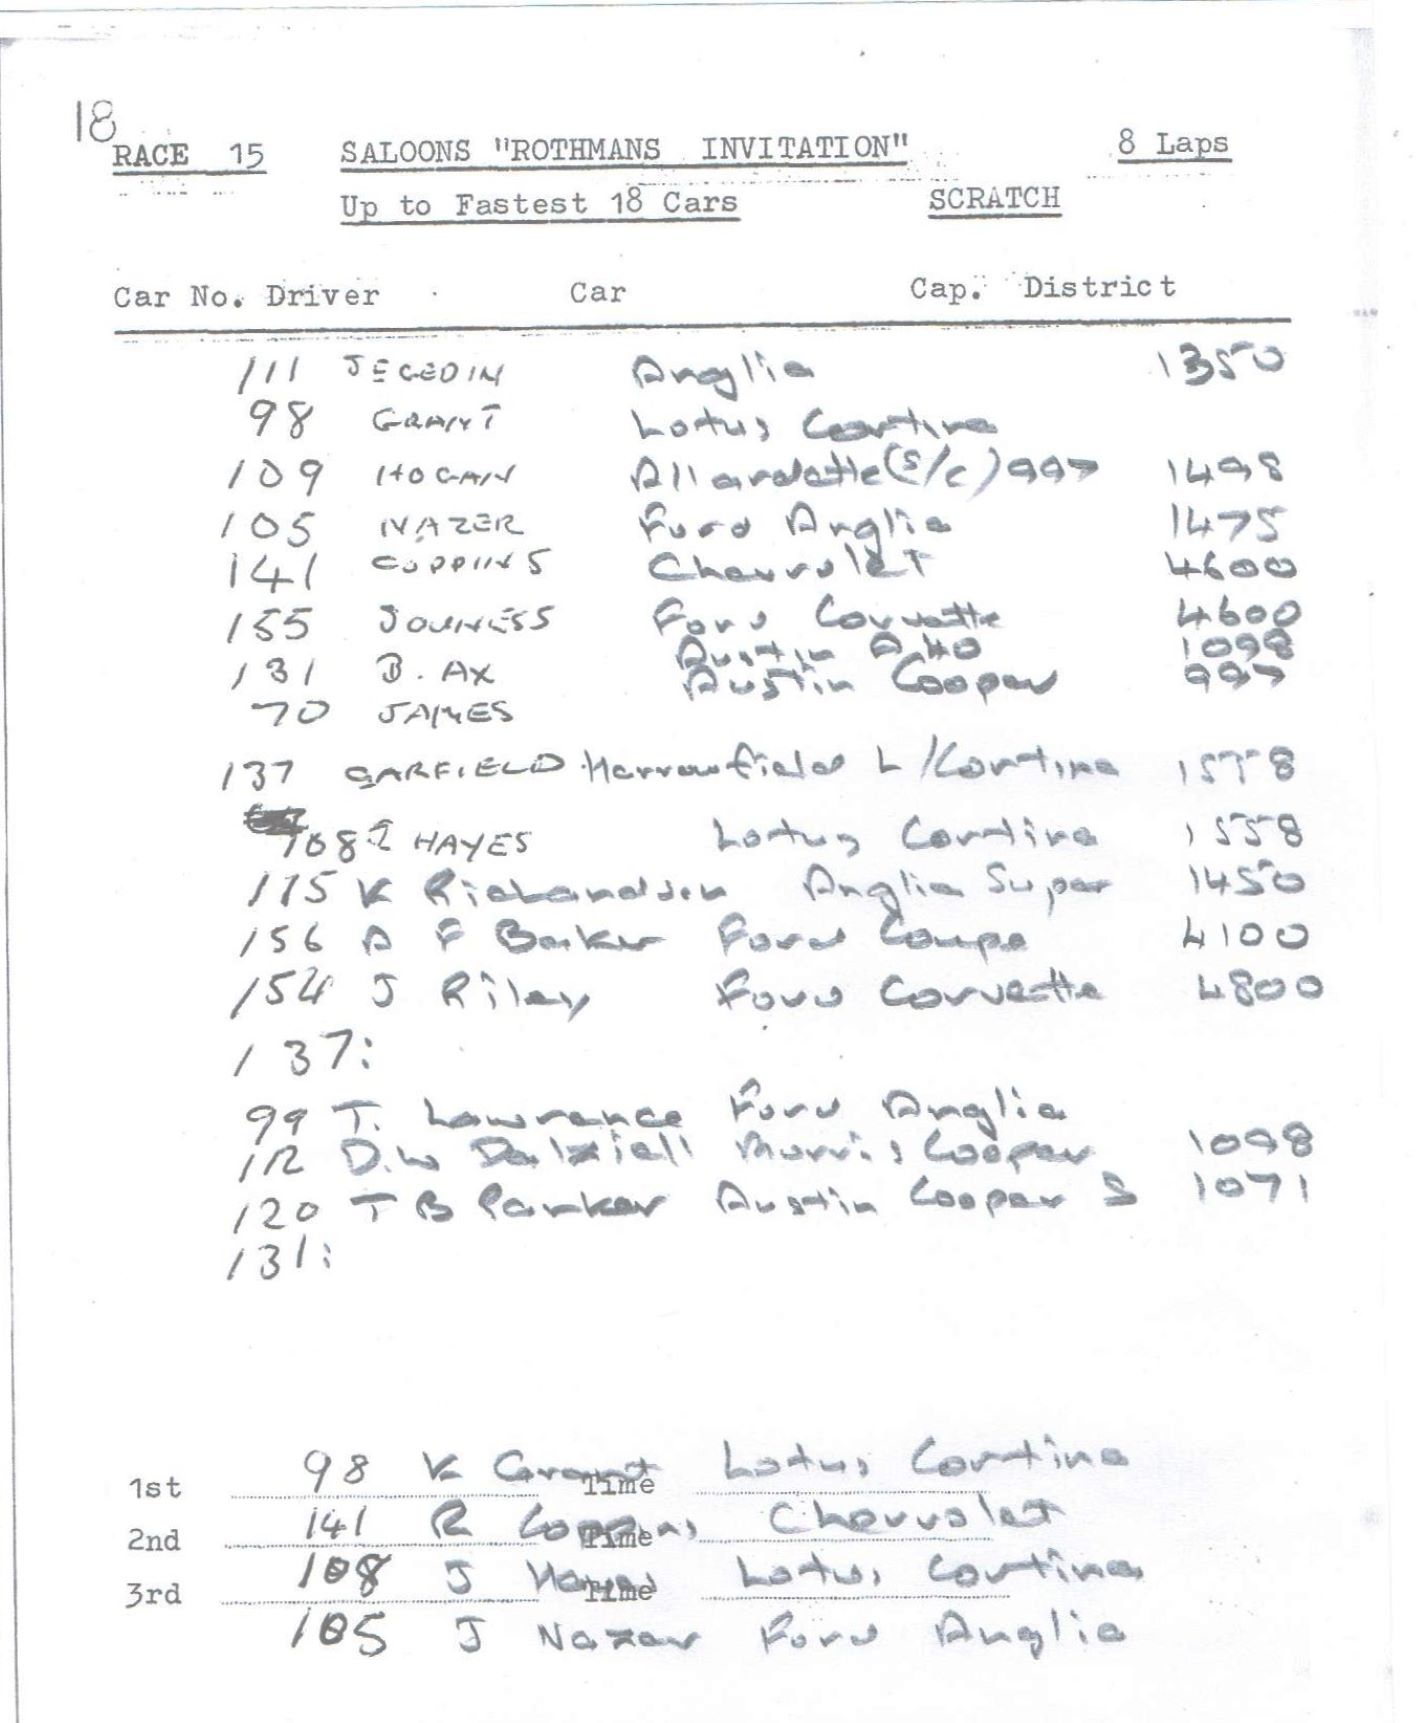 18
RACE 15 SALOONS "ROTHMANS INVITATION" 8 Laps
Up to Fastest 18 Cars SCRATCH
Car No. Driver Car Cap. District
111 JEGEDIN Anglia 1350
98 GRANT Lotus Cortina
109 HOGAN Allardette (S/C) 997 1498
105 NAZER Ford Anglia 1475
141 COPPINS Chevrolet 4600
155 Ford Corvette 4600
Austin A40 1098
131 B. AX Austin Cooper 997
70 JAMES
137 GARFIELD Harrowfield L/Cortina 1558
108 HAYES Lotus Cortina 1558
115 K Richardson Anglia Super 1450
156 A F Barker Ford Coupe 4100
154 J Riley Ford Corvette 4800
137:
99 T. Lawrence Ford Anglia
112 D.W Dalziell Morris Cooper 1098
120 T B Parker Austin Cooper S 1071
131:
1st 98 K Grant Time Lotus Cortina
2nd 141 R Coppins Time Chevrolet
3rd 108 J Hayes Time Lotus Cortina
105 J Nazer Ford Anglia